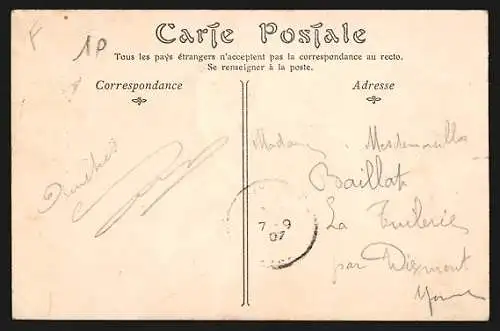 F
1P
Carte Postale
Tous les pays étrangers n'acceptent pas la correspondance au recto.
Se renseigner à la poste.
Correspondance
Adresse
Madame Mesdemoiselles
Baillat
La Tuilerie
par Dixmont
Yonne
7-9
07